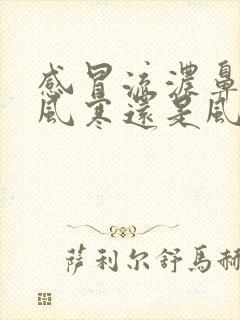 感冒流濃鼻
風寒還是風
萨利尔舒馬赫